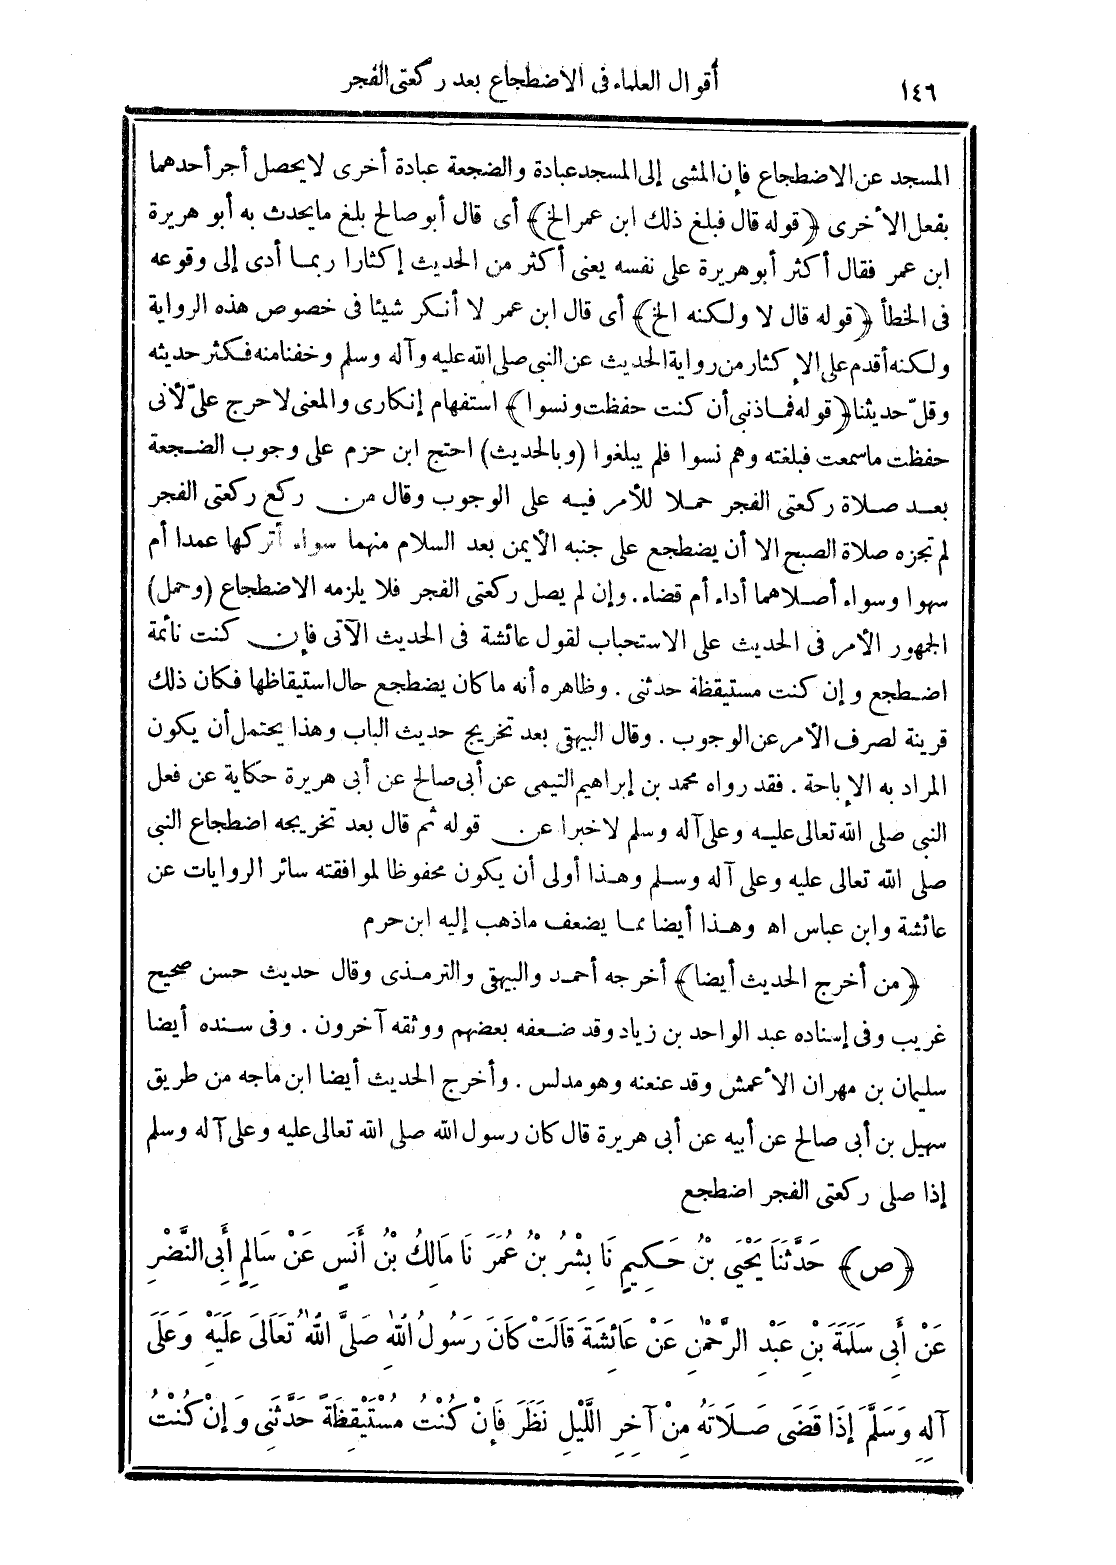 ١٤٦
أقوال العلماء فى الاضطجاع بعد ركعتى الفجر
المسجد عن الاضطجاع فإن المشى إلى المسجد عبادة والضجعة عبادة أخرى لا يحصل أجر أحدهما
بفعل الأخرى ﴿قوله قال فبلغ ذلك ابن عمر الخ﴾ أى قال أبو صالح بلغ ما يحدث به أبو هريرة
ابن عمر فقال أكثر أبو هريرة على نفسه يعنى أكثر من الحديث إكثارا ربما أدى إلى وقوعه
فى الخطأ ﴿قوله قال لا ولكنه الخ﴾ أى قال ابن عمر لا أنكر شيئا فى خصوص هذه الرواية
ولكنه أقدم على الإكثار من رواية الحديث عن النبى صلى الله عليه وآله وسلم وخفنا منه فكثر حديثه
وقلّ حديثنا ﴿قوله فماذنبى أن كنت حفظت ونسوا﴾ استفهام إنكارى والمعنى لا حرج علىّ لأنى
حفظت ما سمعت فبلغته وهم نسوا فلم يبلغوا (وبالحديث) احتج ابن حزم على وجوب الضجعة
بعد صلاة ركعتى الفجر حملا للأمر فيه على الوجوب وقال من ركع ركعتى الفجر
لم تجزه صلاة الصبح الا أن يضطجع على جنبه الأيمن بعد السلام منهما سواء أتركها عمدا أم
سهوا وسواء أصلاهما أداء أم قضاء. وإن لم يصل ركعتى الفجر فلا يلزمه الاضطجاع (وحمل)
الجمهور الأمر فى الحديث على الاستحباب لقول عائشة فى الحديث الآتى فإن كنت نائمة
اضطجع وإن كنت مستيقظة حدثنى . وظاهره أنه ما كان يضطجع حال استيقاظها فكان ذلك
قرينة لصرف الأمر عن الوجوب . وقال البيهقى بعد تخريج حديث الباب وهذا يحتمل أن يكون
المراد به الإباحة . فقد رواه محمد بن إبراهيم التيمى عن أبى صالح عن أبى هريرة حكاية عن فعل
النبى صلى الله تعالى عليه وعلى آله وسلم لا خبرا عن قوله ثم قال بعد تخريجه اضطجاع النبى
صلى الله تعالى عليه وعلى آله وسلم وهذا أولى أن يكون محفوظا لموافقته سائر الروايات عن
عائشة وابن عباس اه وهذا أيضا مما يضعف ماذهب إليه ابن حرم
﴿من أخرج الحديث أيضا﴾ أخرجه أحمد والبيهقى والترمذى وقال حديث حسن صحيح
غريب وفى إسناده عبد الواحد بن زياد وقد ضعفه بعضهم ووثقه آخرون . وفى سنده أيضا
سليمان بن مهران الأعمش وقد عنعنه وهو مدلس . وأخرج الحديث أيضا ابن ماجه من طريق
سهيل بن أبى صالح عن أبيه عن أبى هريرة قال كان رسول الله صلى الله تعالى عليه وعلى آله وسلم
إذا صلى ركعتى الفجر اضطجع
﴿ص﴾ حَدَّثَنَا يَحْيَى بْنُ حَكِيمٍ نَا بِشْرُ بْنُ عُمَرَ نَا مَالِكُ بْنُ أَنَسٍ عَنْ سَالِمٍ أَبِى النَّضْرِ
عَنْ أَبِى سَلَمَةَ بْنِ عَبْدِ الرَّحْمٰنِ عَنْ عَائِشَةَ قَالَتْ كَانَ رَسُولُ اللهِ صَلَّى اللهُ تَعَالَى عَلَيْهِ وَعَلَى
آلِهِ وَسَلَّمَ إِذَا قَضَى صَلَاتَهُ مِنْ آخِرِ اللَّيْلِ نَظَرَ فَإِنْ كُنْتُ مُسْتَيْقِظَةً حَدَّثَنِى وَإِنْ كُنْتُ